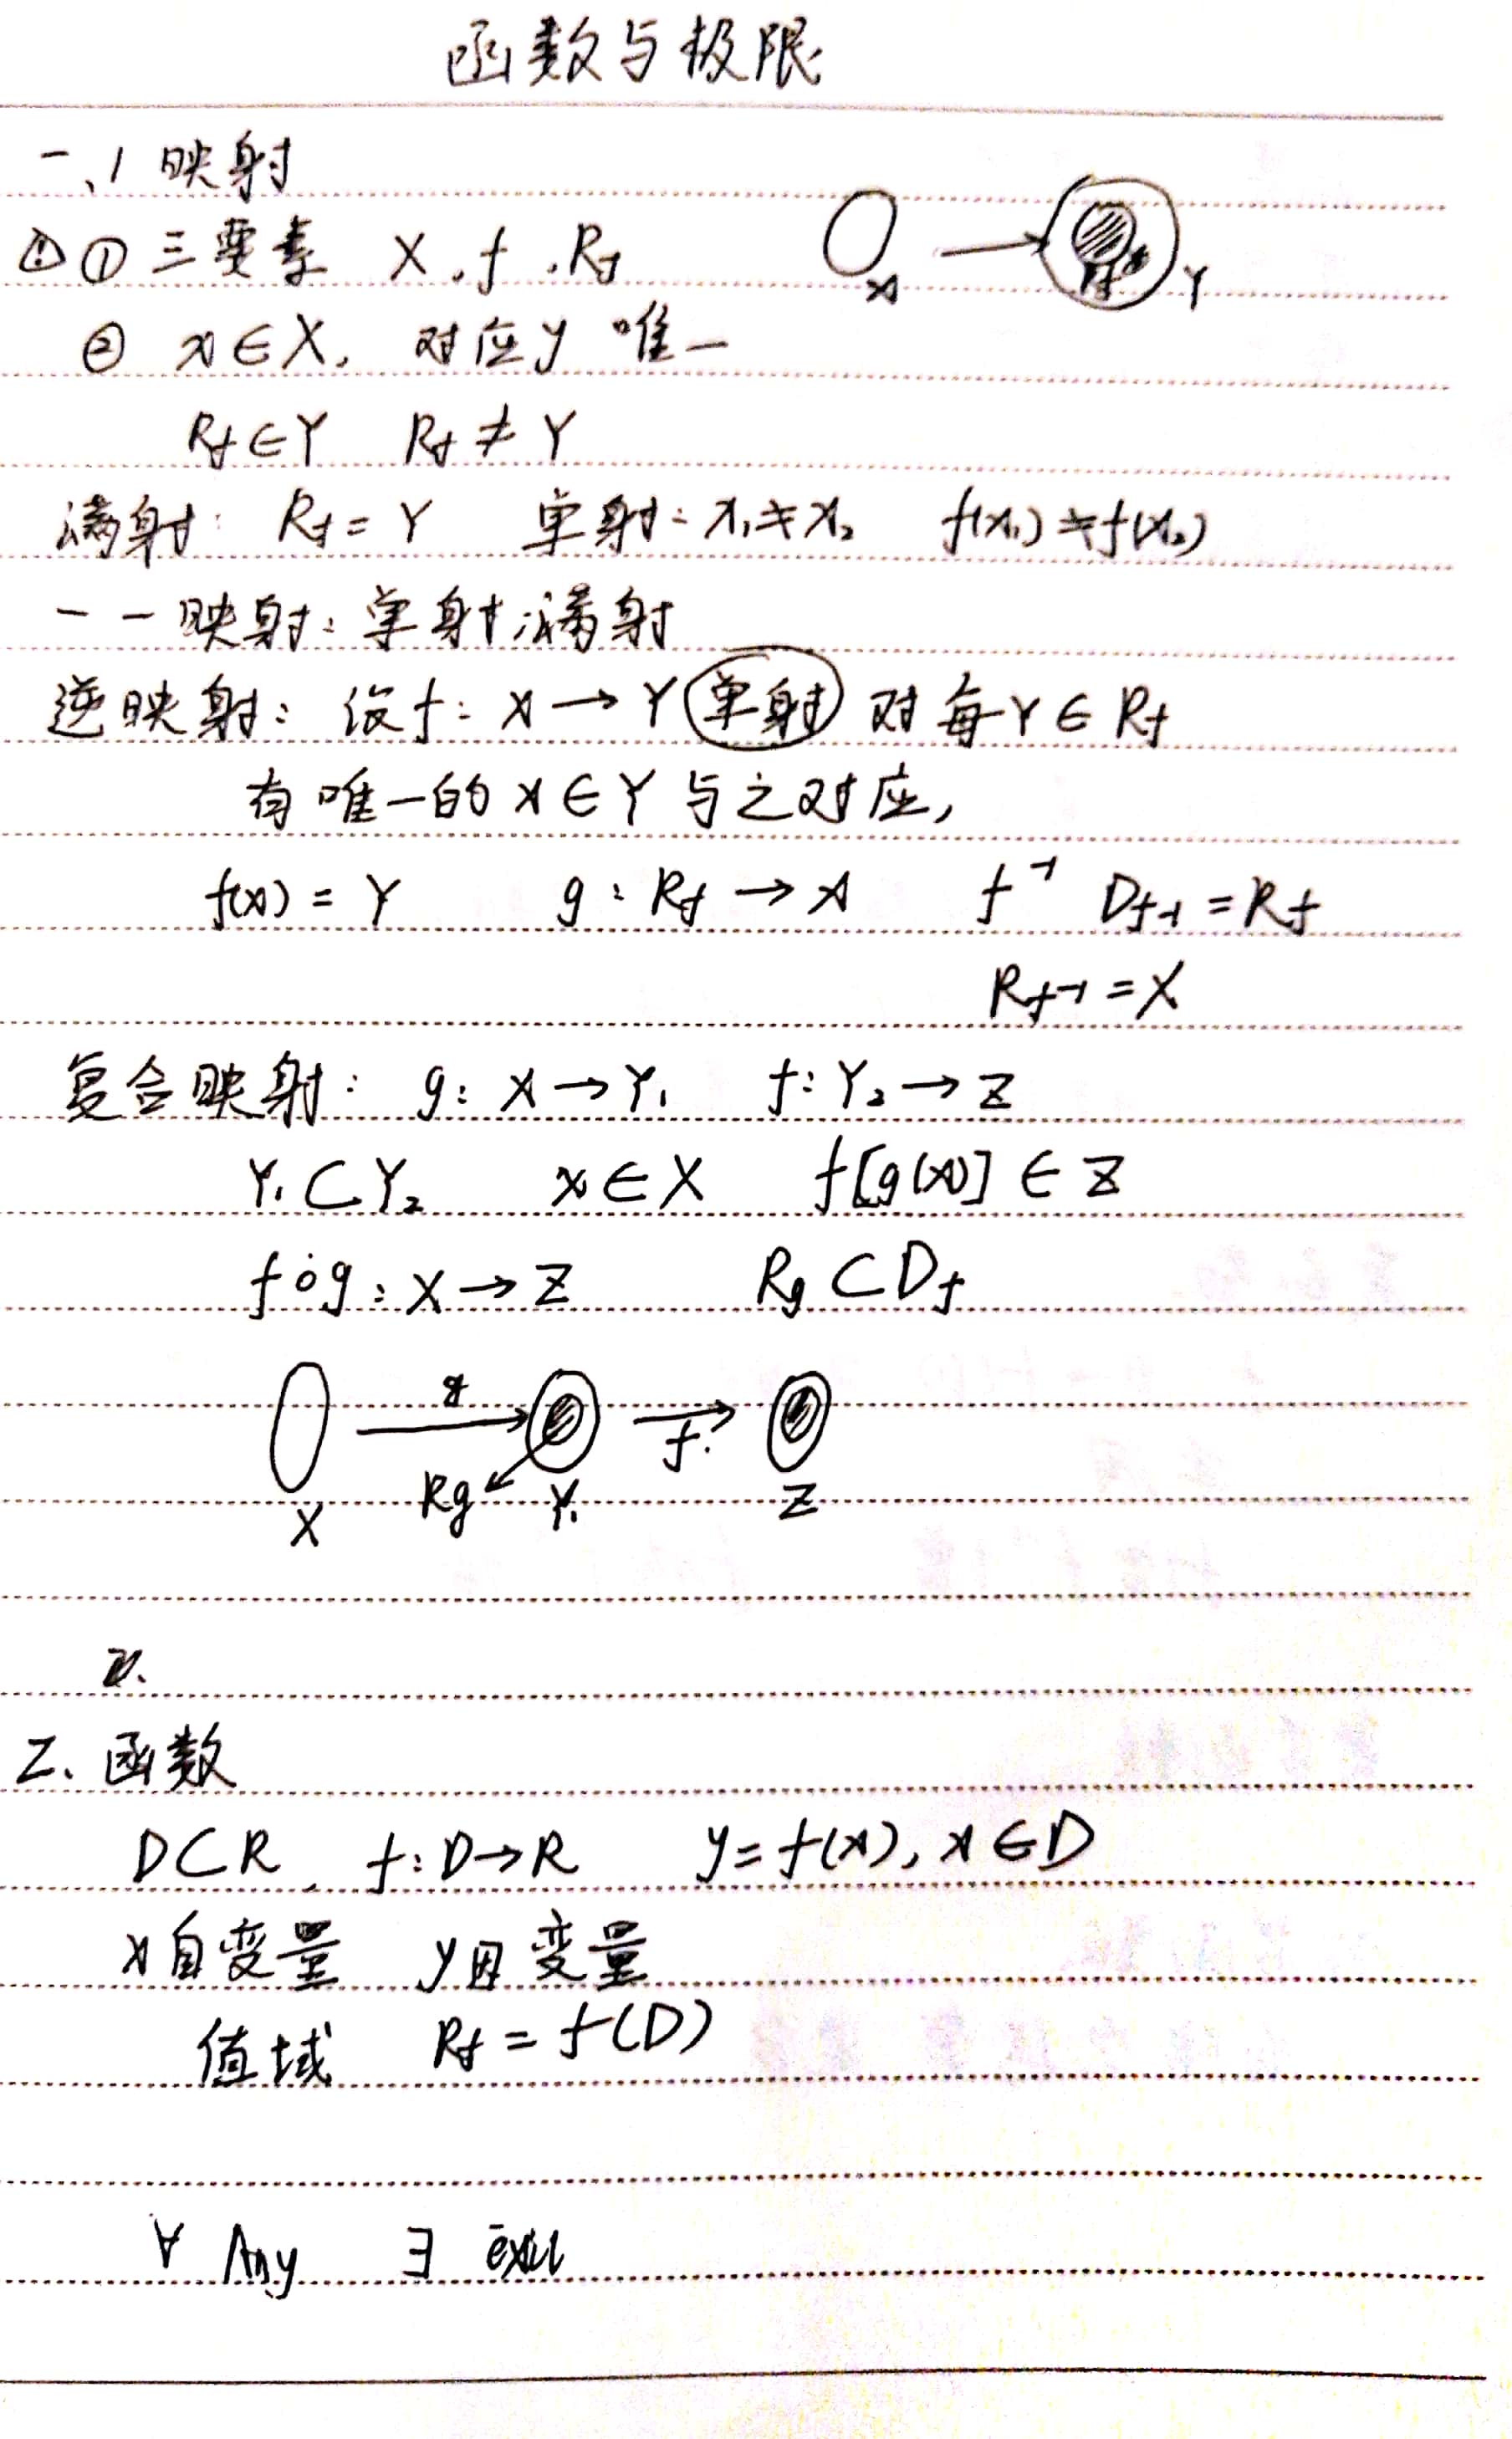 函数与极限
一、1 映射
① 三要素 X . f . Rf
X Y
② x∈X, 对应y 唯一
Rf∈Y Rf≠Y
满射: Rf=Y 单射: x₁≠x₂ f(x₁)≠f(x₂)
一一映射: 单射满射
逆映射: 设f: X→Y 单射 对每Y∈Rf
有唯一的x∈Y与之对应,
f(x)=Y g: Rf→X f⁻¹ Df⁻¹=Rf
Rf⁻¹=X
复合映射: g: X→Y₁ f: Y₂→Z
Y₁⊂Y₂ x∈X f[g(x)]∈Z
f∘g: X→Z Rg⊂Df
g f
X Rg Y₁ Z
2. 函数
D⊂R, f: D→R y=f(x), x∈D
x自变量 y因变量
值域 Rf=f(D)
∀ Any ∃